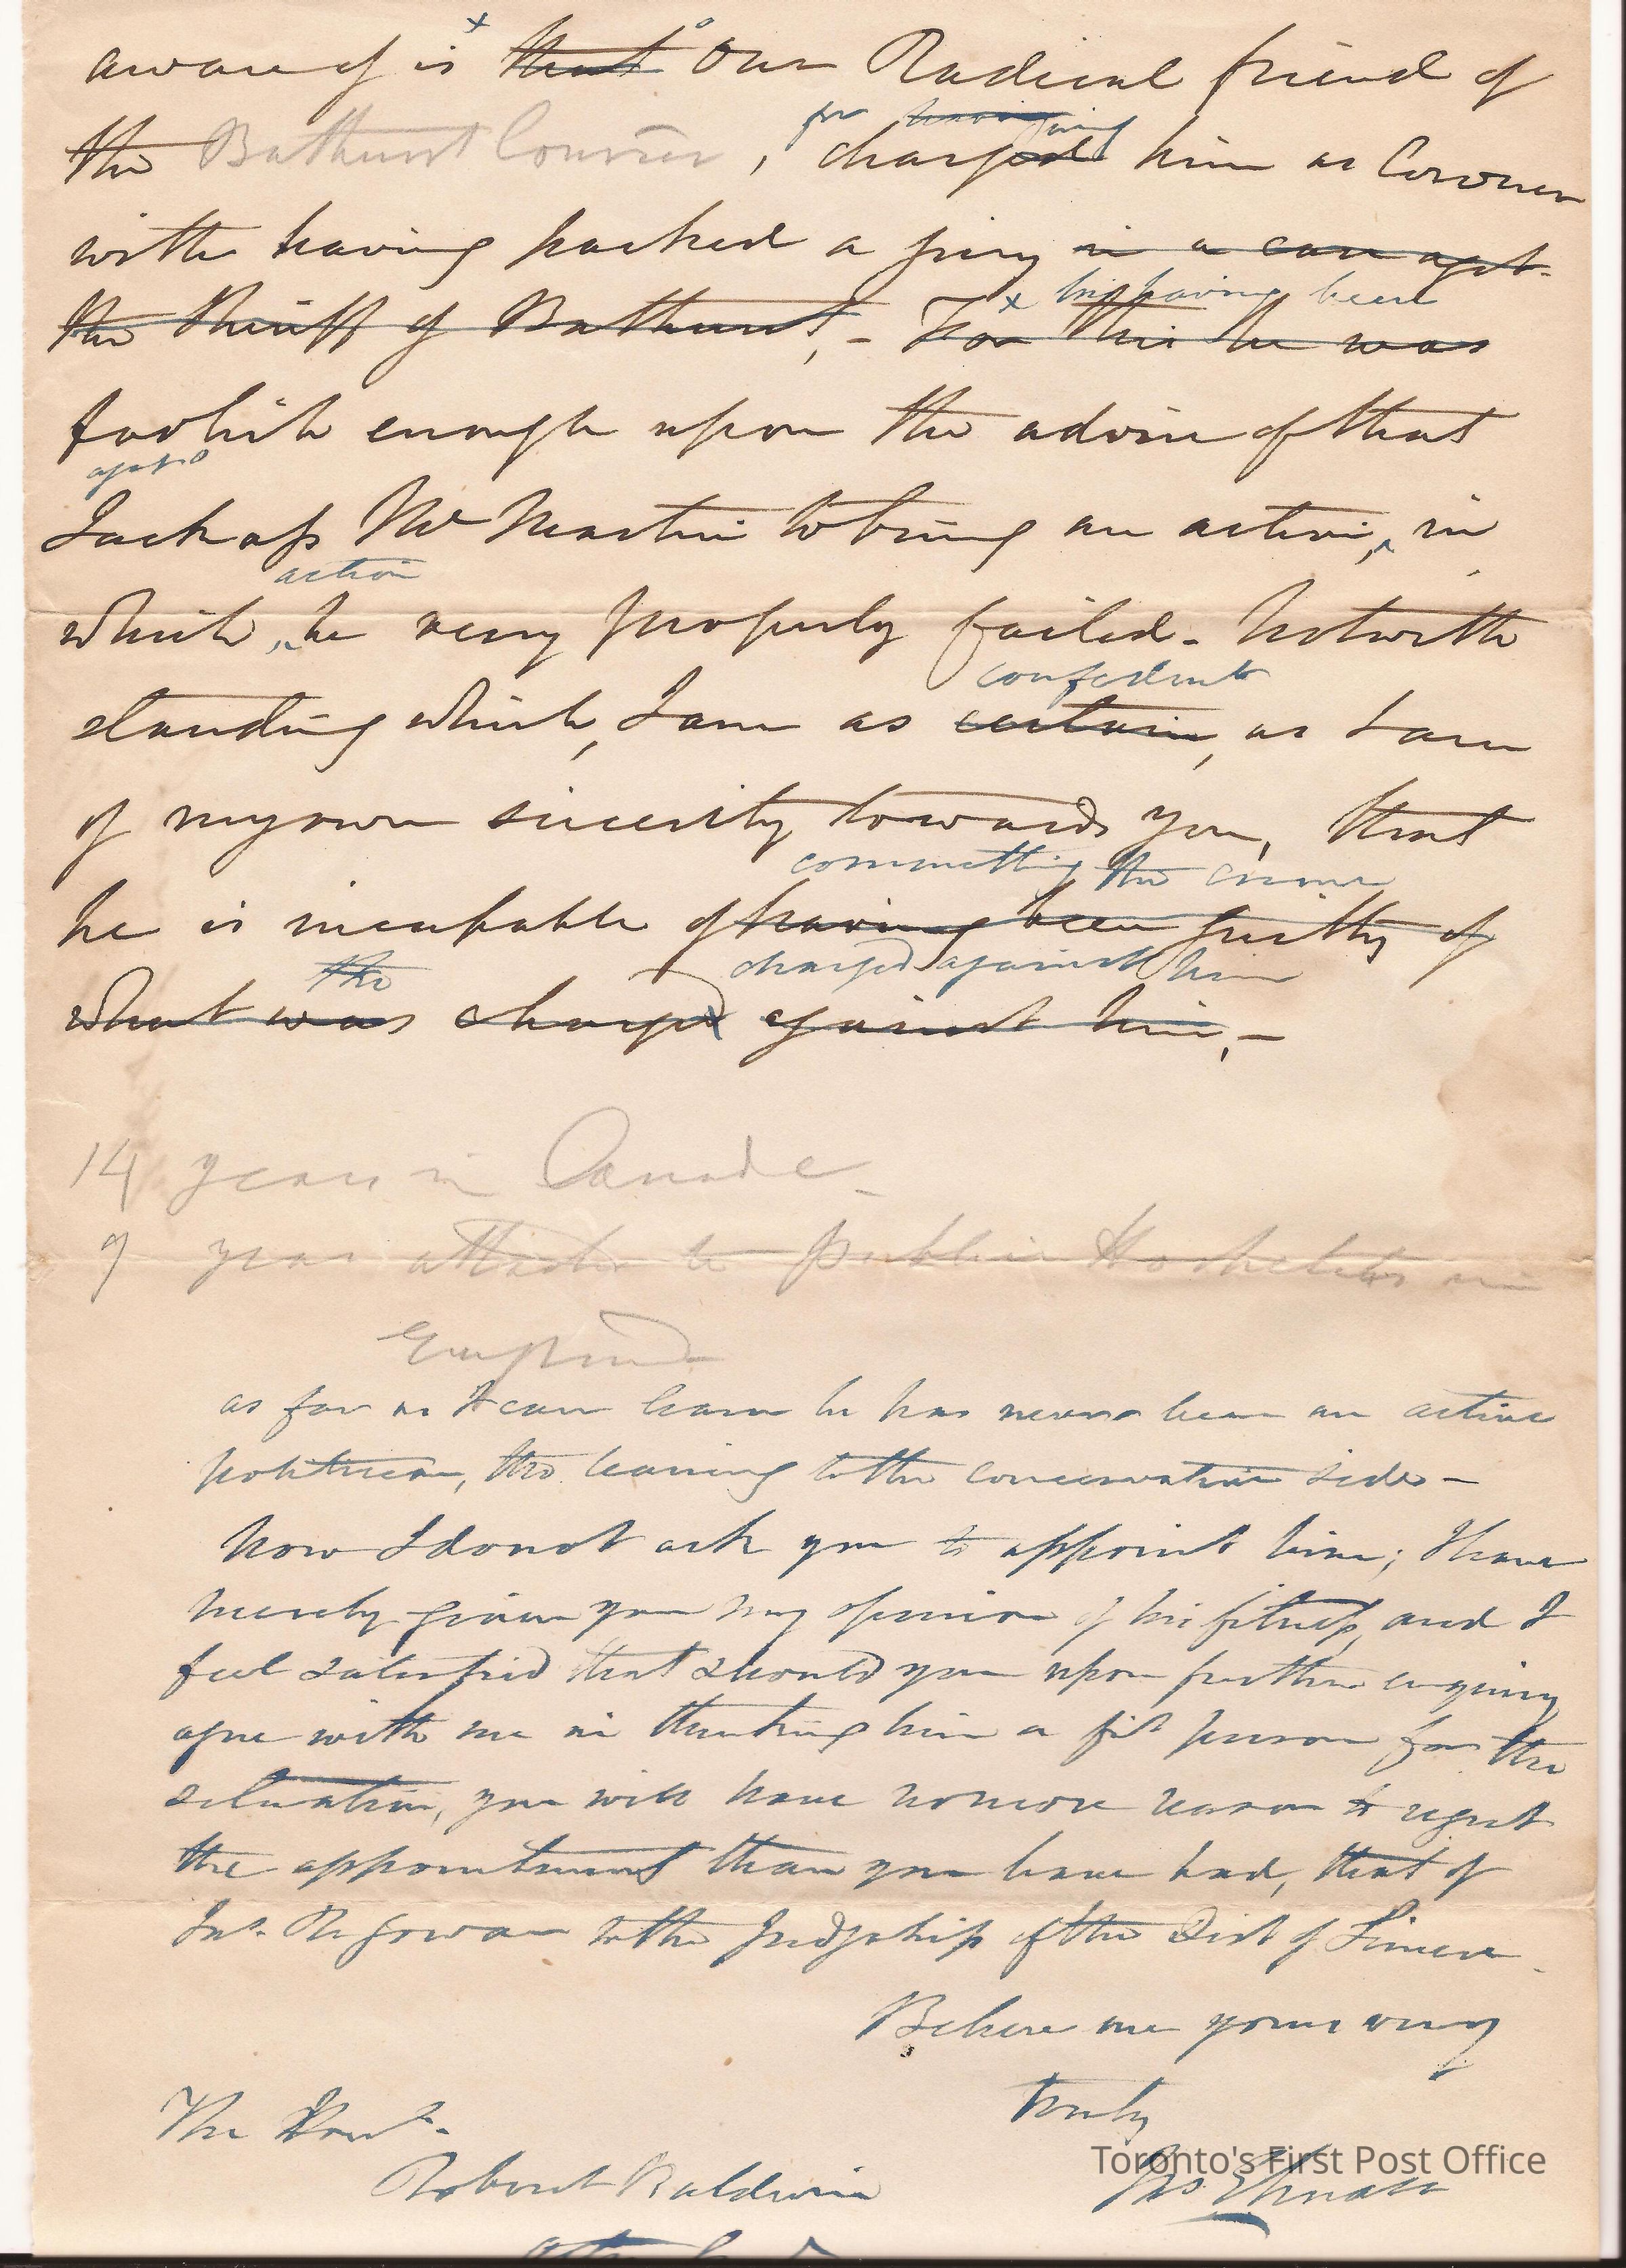 aware of is that our Radical friend of
the Bathurst Courier, for having charged him as Coroner
with having packed a jury in a case agst.
the Sheriff of Bathurst, – For this he was
x his having been
foolish enough upon the advice of that
agst
Jackass McMartin to bring an action, in
action
which, he very properly failed – Notwith
confident
standing which, I am as certain, as I am
of my own sincerity towards you, that
committing the crime
he is incapable of having been guilty of
the charged against him
what was charged against him, –
14 years in Canada –
9 year attached to public Hospitals in
England
as far as I can learn he has never been an active
politician, tho. leaning to the conservative side –
Now I do not ask you to appoint him; I have
merely given you my opinion of his fitness, and I
feel satisfied that should you upon further enquiry
agree with me in thinking him a fit person for the
situation, you will have no more reason to regret
the appointment than you have had, that of
Jas. McGowan to the Judgeship of the Dist of Simcoe
Believe me yours very
truly
The Honl.
Robert Baldwin
Toronto's First Post Office